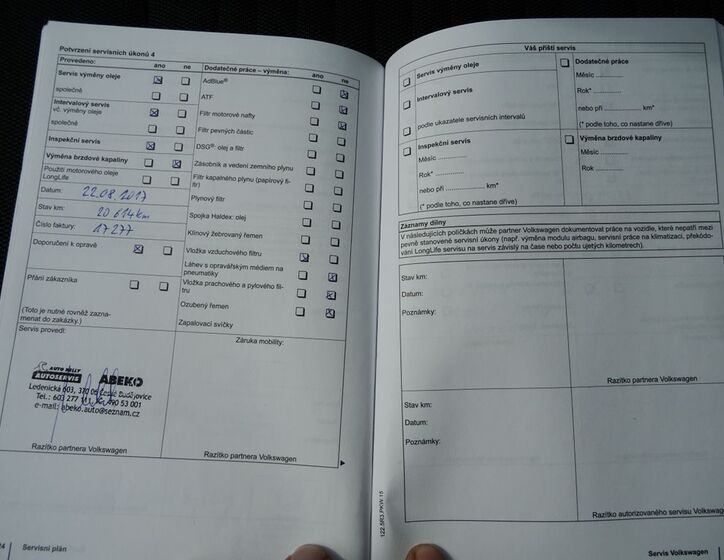 Potvrzení servisních úkonů 4
Provedeno: ano ne
Servis výměny oleje
společně
Intervalový servis
vč. výměny oleje
společně
Inspekční servis
Výměna brzdové kapaliny
Použití motorového oleje
LongLife
Datum: 22.08.2017
Stav km: 20 614 km
Číslo faktury: 17277
Doporučení k opravě
Přání zákazníka
(Toto je nutné rovněž zazna-
menat do zakázky.)
Servis provedl:
AUTO KELLY
AUTOSERVIS ABEKO
Ledenická 603, České Budějovice
Tel.: 603 277
e-mail: abeko.auto@seznam.cz
Razítko partnera Volkswagen
Dodatečné práce – výměna: ano ne
AdBlue®
ATF
Filtr motorové nafty
Filtr pevných částic
DSG®: olej a filtr
Zásobník a vedení zemního plynu
Filtr kapalného plynu (papírový fi-
ltr)
Plynový filtr
Spojka Haldex: olej
Klínový žebrovaný řemen
Vložka vzduchového filtru
Láhev s opravářským médiem na
pneumatiky
Vložka prachového a pylového fil-
tru
Ozubený řemen
Zapalovací svíčky
Záruka mobility:
Razítko partnera Volkswagen
24 Servisní plán
Váš příští servis
Servis výměny oleje
Intervalový servis
podle ukazatele servisních intervalů
Inspekční servis
Měsíc ............
Rok* ............
nebo při ............ km*
(* podle toho, co nastane dříve)
Dodatečné práce
Měsíc ............
Rok* ............
nebo při ............ km*
(* podle toho, co nastane dříve)
Výměna brzdové kapaliny
Měsíc ............
Rok ............
Záznamy dílny
V následujících políčkách může partner Volkswagen dokumentovat práce na vozidle, které nepatří mezi
pevně stanovené servisní úkony (např. výměna modulu airbagu, servisní práce na klimatizaci, překódo-
vání LongLife servisu na servis závislý na čase nebo počtu ujetých kilometrech).
Stav km:
Datum:
Poznámky:
Razítko partnera Volkswagen
Stav km:
Datum:
Poznámky:
Razítko autorizovaného servisu Volkswagen
122.5R3.PKW.15
Servis Volkswagen